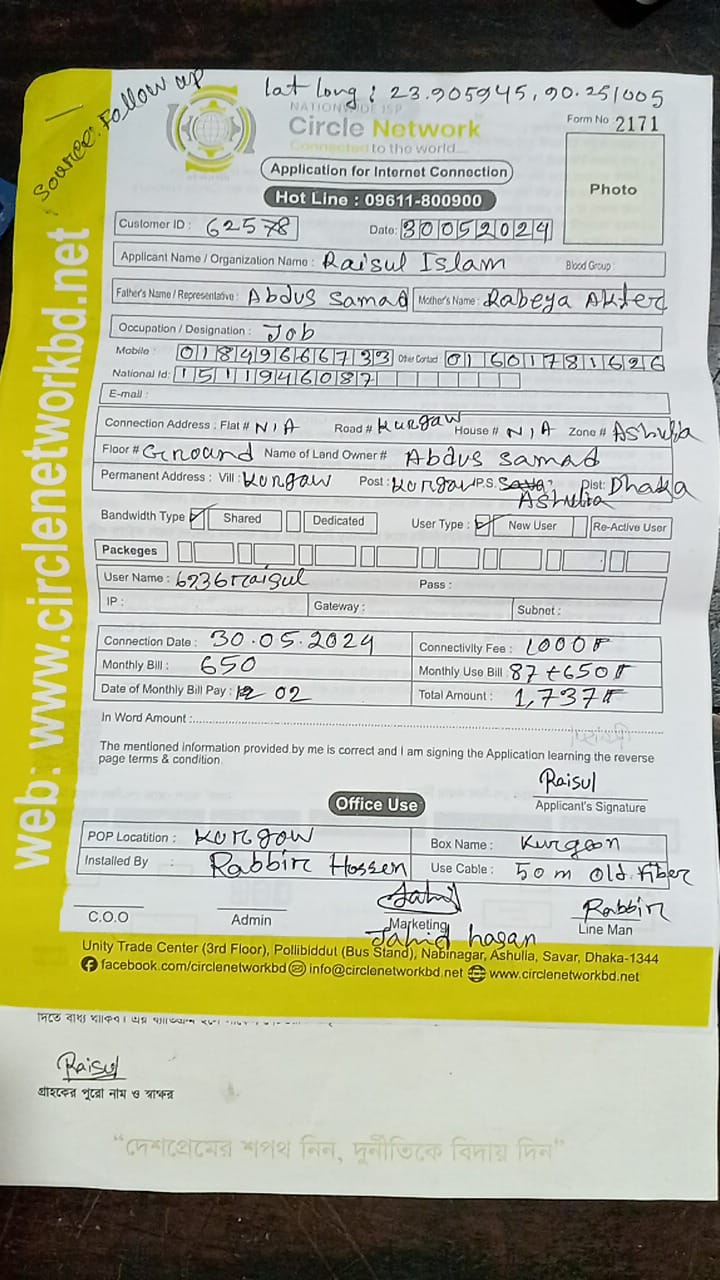 Source: Follow up
lat long : 23.905945, 90.251005
NATIONWIDE ISP
Circle Network
Connected to the world....
Form No 2171
Application for Internet Connection
Photo
Hot Line : 09611-800900
Customer ID : 62578 Date: 30052024
Applicant Name / Organization Name : Raisul Islam Blood Group :
Father's Name / Representative : Abdus Samad Mother's Name : Rabeya Akter
Occupation / Designation : Job
Mobile : 01849666733 Other Contact 01601781626
National Id: 1511946087
E-mail :
Connection Address : Flat # N/A Road # Kurgaw House # N/A Zone # Ashulia
Floor # Ground Name of Land Owner # Abdus Samad
Permanent Address : Vill : Korgaw Post : Korgaw P.S. Ashulia Dist: Dhaka
Bandwidth Type Shared Dedicated User Type : New User Re-Active User
Packeges
User Name : 6236raisul Pass :
IP : Gateway : Subnet :
Connection Date : 30.05.2024 Connectivity Fee : 1000৳
Monthly Bill : 650 Monthly Use Bill 87+650৳
Date of Monthly Bill Pay : 02 Total Amount : 1,737৳
In Word Amount :
The mentioned information provided by me is correct and I am signing the Application learning the reverse
page terms & condition.
Raisul
Applicant's Signature
Office Use
POP Locatition : Korgaw Box Name : Kurgaon
Installed By : Rabbir Hossen Use Cable : 50 m Old Fiber
C.O.O Admin Marketing Line Man
Jahid hasan Rabbir
Unity Trade Center (3rd Floor), Pollibiddut (Bus Stand), Nabinagar, Ashulia, Savar, Dhaka-1344
facebook.com/circlenetworkbd info@circlenetworkbd.net www.circlenetworkbd.net
web: www.circlenetworkbd.net
দিতে বাধ্য থাকিব।
Raisul
গ্রাহকের পুরো নাম ও স্বাক্ষর
“দেশপ্রেমের শপথ নিন, দুর্নীতিকে বিদায় দিন”